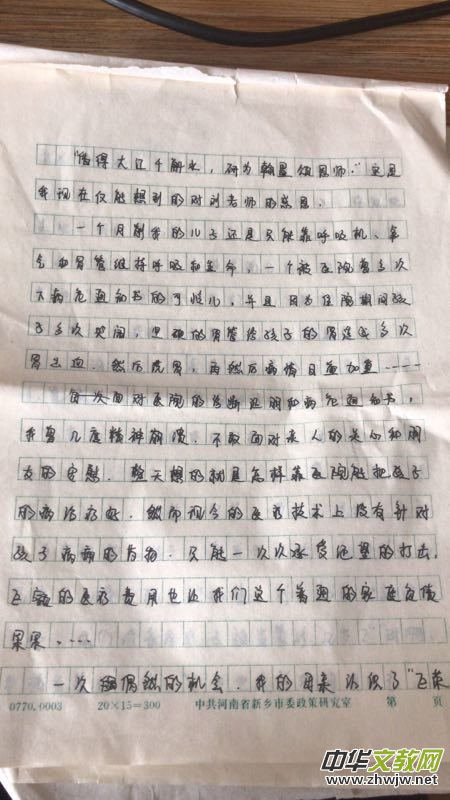 “借得大江千斛水，研为翰墨颂恩师。”这是
我现在仅能想到的对刘老师的感恩。
一个月前我的儿子还是只能靠呼吸机、氧
气和胃管维持呼吸和生命，一个被医院曾多次
下病危通知书的可怜儿，并且因为住院期间孩
子多次哭闹，坚硬的胃管给孩子的胃造成多次
胃出血，然后洗胃，再然后病情日益加重……
每一次面对医院的诊断证明和病危通知书，
我曾几度精神崩溃，不敢面对亲人的关心和朋
友的安慰，整天想的就是怎样靠医院能把孩子
的病治疗好，然而现今的医疗技术上没有针对
孩子病病的有药，只能一次次承受绝望的打击，
飞额的医疗费用也让我们这个普通的家庭负债
累累……
一次很偶然的机会，我的母亲认识了“飞荣
0770.0003 20×15=300 中共河南省新乡市委政策研究室 第 页
中华文教网
www.zhwjw.net